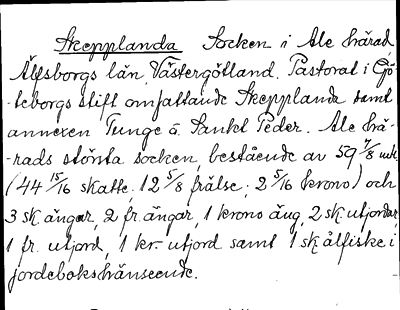 Skepplanda Socken i Ale härad
Älfsborgs län, Västergötland. Pastorat i Gö-
-teborgs stift omfattande Skepplanda samt
annexen Tunge o. Sankt Peder. Ale hä-
-rads största socken bestående av 59 7/8 mtl.
(44 15/16 skatte, 12 5/8 frälse, 2 5/16 krono) och
3 sk ängar, 2 fr. ängar, 1 krono äng, 2 sk utjordar,
1 fr. utjord, 1 kr. utjord samt 1 sk ålfiske i
jordebokshänseende.